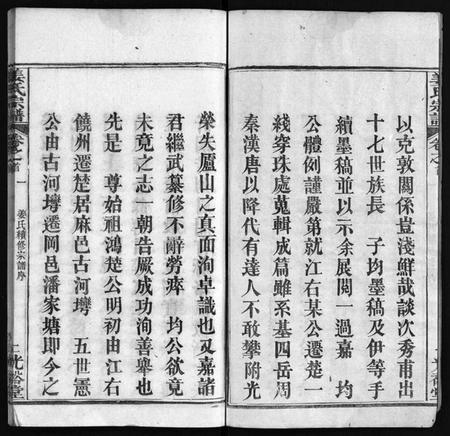 姜氏宗譜
卷之首
以克敦關係豈淺鮮哉談次秀甫出
十七世族長 子均墨稿及伊等手
續墨稿並以示余展閱一過嘉 均
公體例謹嚴第就江右某公遷楚一
綫穿珠處蒐輯成篇雖系基四岳周
秦漢唐以降代有達人不敢攀附光
榮失廬山之真面洵卓識也又嘉諸
君繼武纂修不辭勞瘁 均公欲竟
未竟之志一朝告厥成功洵善舉也
先是 尊始祖鴻楚公明初由江右
饒州遷楚居麻邑古河塆 五世憲
公由古河塆遷岡邑潘家塘即今之
姜氏宗譜
卷之首
一
姜氏續修宗譜序
光裕堂